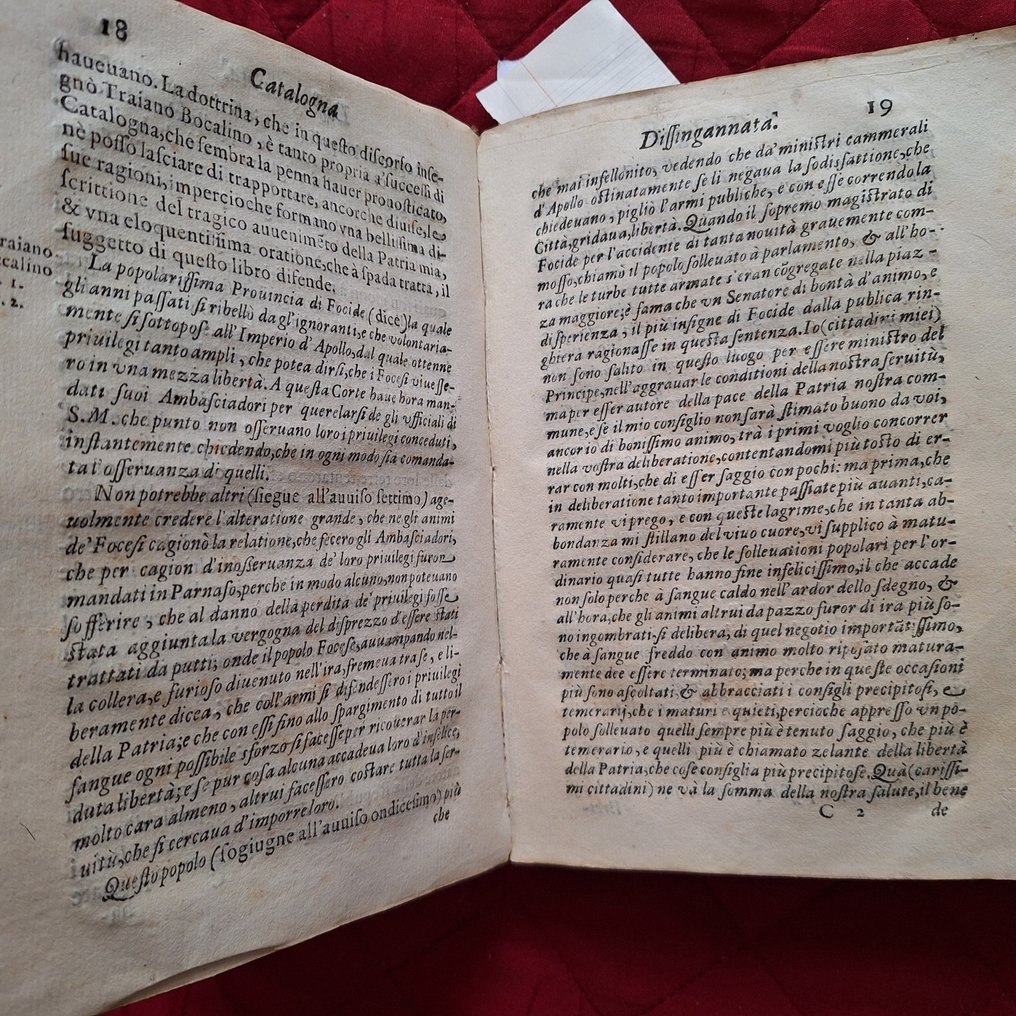 18
Catalogna
haueuano. La dottrina, che in questo discorso inse-
gnò Traiano Bocalino, è tanto propria a' successi di
Catalogna, che sembra la penna hauer pronosticato,
nè posso lasciare di trapportare, ancorche diuise, le
sue ragioni, impercioche formano vna bellissima di-
scrittione del tragico auuenimēto della Patria mia,
& vna eloquentissima oratione, che à spada tratta, il
suggetto di questo libro difende.
raiano
ccalino
. 1.
. 2.
La popolarissima Prouincia di Focide (dice) la quale
gli anni passati si ribellò da gl'ignoranti, e che volontaria-
mente si sottopose all'Imperio d'Apollo, dal quale ottenne
priuilegi tanto ampli, che potea dirsi, che i Focesi viuesse-
ro in vna mezza libertà. A questa Corte haue hora man-
dati suoi Ambasciadori per querelarsi de gli vfficiali di
S.M. che punto non osseruano loro i priuilegi conceduti,
instantemente chiedendo, che in ogni modo sia comanda-
ta l'osseruanza di quelli.
Non potrebbe altri (siegue all'auuiso settimo) age-
uolmente credere l'alteratione grande, che ne gli animi
de' Focesi cagionò la relatione, che fecero gli Ambasciadori,
che per cagion d'inosseruanza de' loro priuilegi furon
mandati in Parnaso, perche in modo alcuno, non poteuano
sofferire, che al danno della perdita de' priuilegi fosse
stata aggiunta la vergogna del disprezzo d'essere stati
trattati da putti; onde il popolo Focese, auuampando nel-
la collera, e furioso diuenuto nell'ira, fremeua trase, e li-
beramente dicea, che coll'armi si difendessero i priuilegi
della Patria; e che con essi fino allo spargimento di tutto il
sangue ogni possibile sforzo si facesse per ricouerar la per-
duta libertà; e se pur cosa alcuna accadeua loro d'infelice,
molto cara almeno, altrui facessero costare tutta la ser-
uitù, che si cercaua d'imporre loro.
Questo popolo (sogiugne all'auuiso ondicesimo) più
che
Dissingannata.
19
che mai infellonito, vedendo che da' ministri cammerali
d'Apollo ostinatamente se li negaua la sodisfattione, che
chiedeuano, pigliò l'armi publiche, e con esse correndo la
Città, gridaua, libertà. Quando il sopremo magistrato di
Focide per l'accidente di tanta nouità grauemente com-
mosso, chiamò il popolo solleuato à parlamento, & all'ho-
ra che le turbe tutte armate s'eran cōgregate nella piaz-
za maggiore; è fama che vn Senatore di bontà d'animo, e
di sperienza, il più insigne di Focide dalla publica rin-
ghiera ragionasse in questa sentenza. Io (cittadini miei)
non sono salito in questo luogo per essere ministro del
Principe, nell'aggrauar le conditioni della nostra seruitù,
ma per esser autore della pace della Patria nostra com-
mune, e se il mio consiglio non sarà stimato buono da voi,
ancor io di bonissimo animo, trà i primi voglio concorrer
nella vostra deliberatione, contentandomi più tosto di er-
rar con molti, che di esser saggio con pochi: ma prima, che
in deliberatione tanto importante passiate più auanti, ca-
ramente vi prego, e con queste lagrime, che in tanta ab-
bondanza mi stillano del viuo cuore, vi supplico à matu-
ramente considerare, che le solleuationi popolari per l'or-
dinario quasi tutte hanno fine infelicissimo, il che accade
non solo perche à sangue caldo nell'ardor dello sdegno, &
all'hora, che gli animi altrui da pazzo furor di ira più so-
no ingombrati si delibera, di quel negotio importātissimo,
che à sangue freddo con animo molto riposato matura-
mente dee essere terminato; ma perche in queste occasioni
più sono ascoltati, & abbracciati i consigli precipitosi, e
temerarij, che i maturi e quieti, percioche appresso vn po-
polo solleuato quelli sempre più è tenuto saggio, che più è
temerario, e quelli più è chiamato zelante della libertà
della Patria, che cose consiglia più precipitose. Quà (carissi-
mi cittadini) ne và la somma della nostra salute, il bene
C 2
de